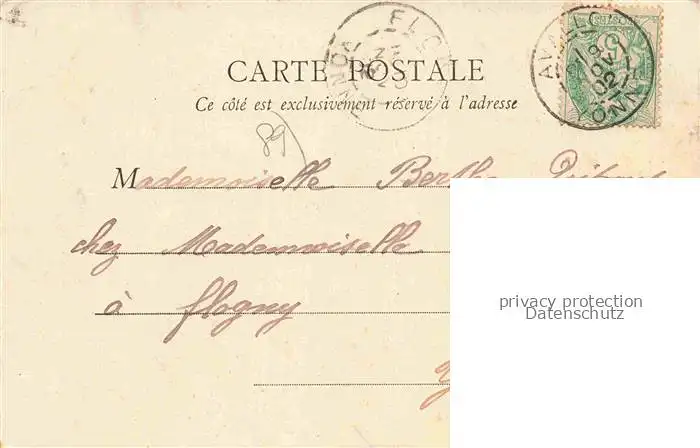 CARTE POSTALE
Ce côté est exclusivement réservé à l'adresse
89
Mademoiselle Berthe
chez Mademoiselle
à Flogny
privacy protection
Datenschutz